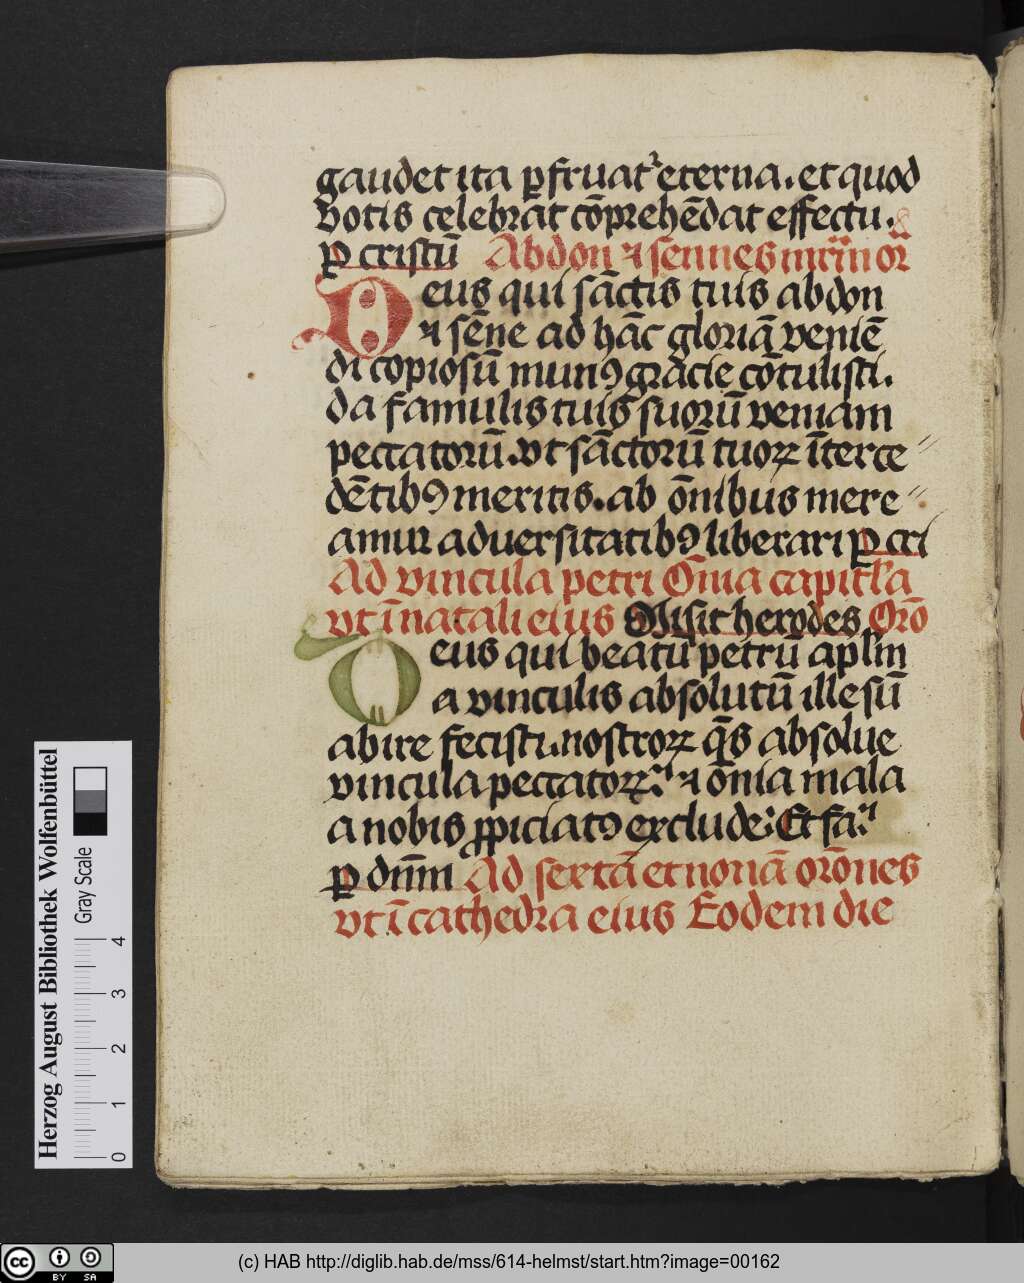 gaudet ita ꝑfruatᷣ eterna. et quod
votis celebrāt cōprehēdat effectu.
ꝑ cristū Abdon ⁊ sennes mr̄m or
Deus qui sāctis tuis abdon
⁊ sēne ad hāc gloriā veniē
di copiosū munꝯ gracie cōtulisti.
da famulis tuis suorū veniam
peccatorū. vt sāctorū tuoꝝ īterce〃
dētibꝯ meritis. ab ōnibus mere〃
amur aduersitatibꝯ liberari ꝑ cri
Ad vincula petri Om̄ia capitl̄a
vt ī natali eius Misit herodes Orō
Deus qui beatū petrū apl̄m
a vinculis absolutū illesū
abire fecisti. nostroꝝ q̄s absolue
vincula peccatoꝝ: ⁊ ōnia mala
a nobis ꝓpiciatꝯ exclude: Et fa:
ꝑ dn̄m Ad sextā et nonā orōnes
vt ī cathedra eius Eodem die
Herzog August Bibliothek Wolfenbüttel
Gray Scale
0 1 2 3 4
cc BY SA
(c) HAB http://diglib.hab.de/mss/614-helmst/start.htm?image=00162